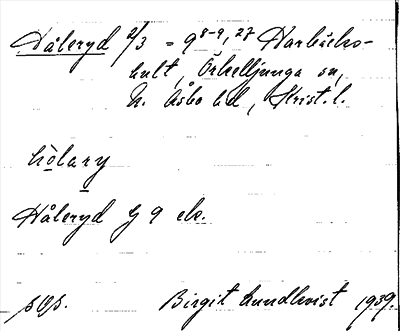 Håleryd 2/3 = 9 8-9, 27 Harbäcks-
hult, Örkelljunga sn,
N. Åsbo hd, Krist. l.
hòlary
Håleryd G 9 ek.
pOp. Birgit Lundkvist 1939.